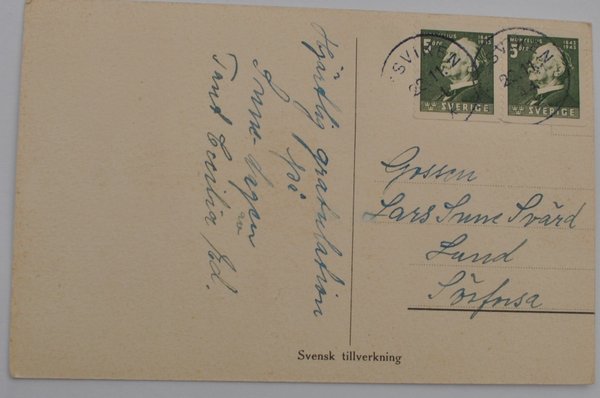 Hjärtlig gratulation
på
Sune-dagen
av
Tant Cecilia
MONTELIUS 1843 1943
5 ÖRE
SVERIGE
MONTELIUS 1843 1943
5 ÖRE
SVERIGE
Gossen
Lars Sune Svärd
Lund
Sörforsa
Svensk tillverkning